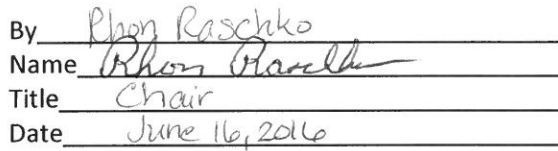 By Rhon Raschko
Name Rhon Raschko
Title Chair
Date June 16, 2016